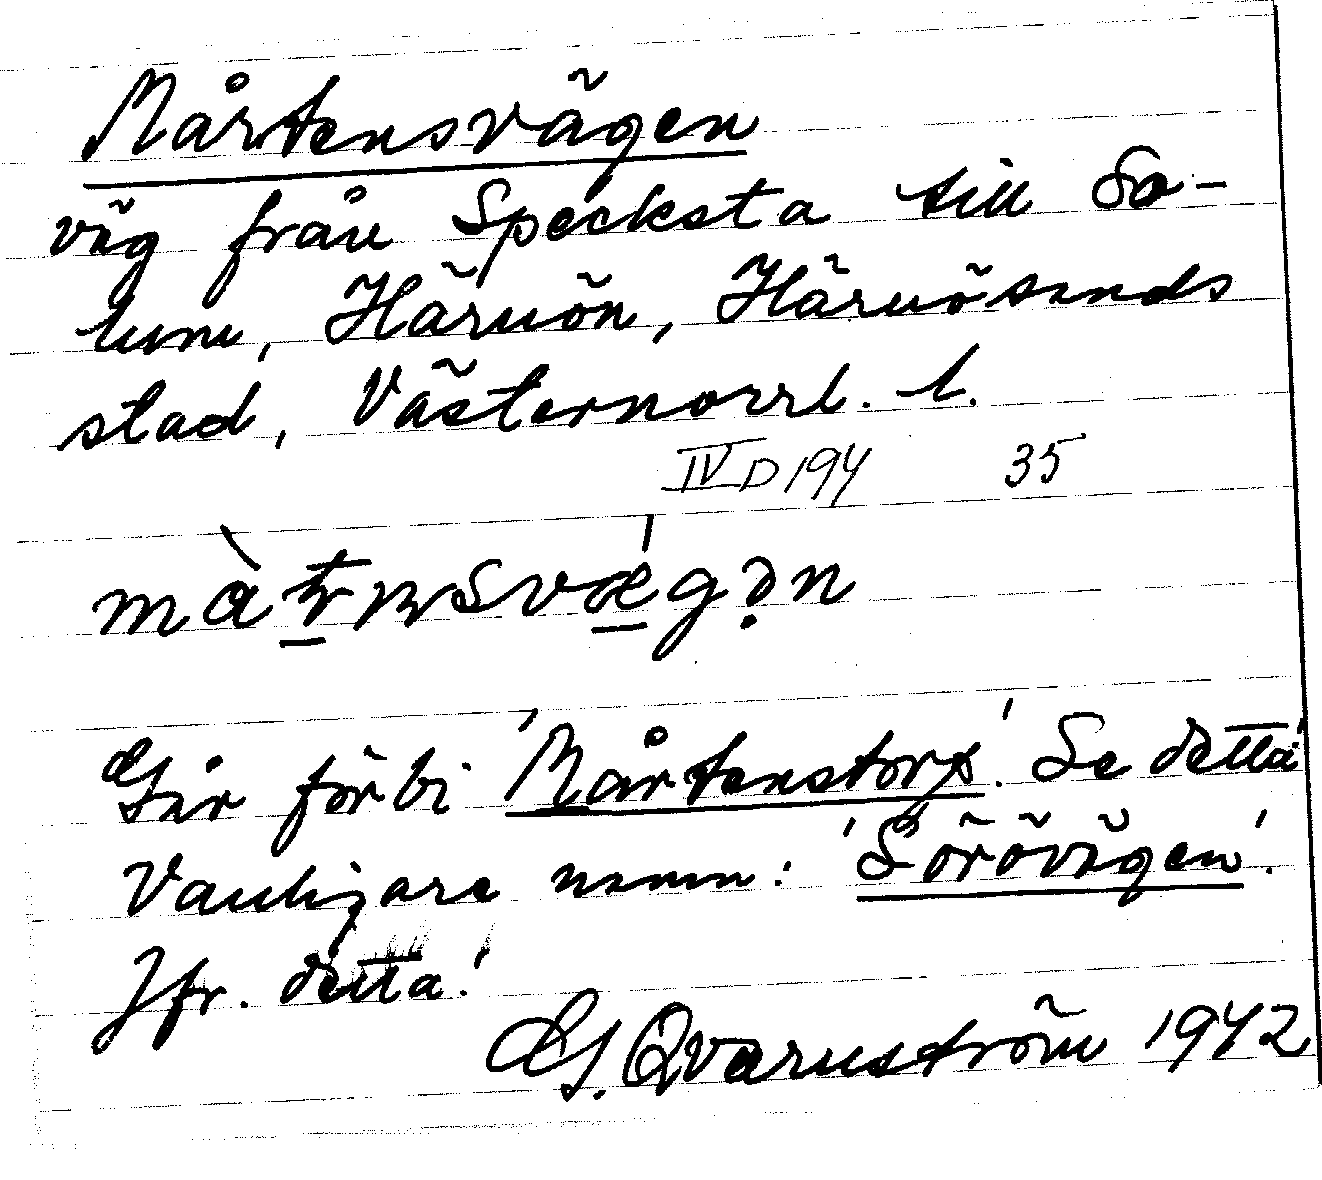 Mårtensvägen
väg från Specksta till So-
lum, Härnön, Härnösands
stad, Västernorrl. l.
IV D 194 35
Går förbi 'Mårtenstorp'. Se detta!
Vanligare namn: 'Sörövägen'.
Jfr. detta!
G. Qvarnström 1942